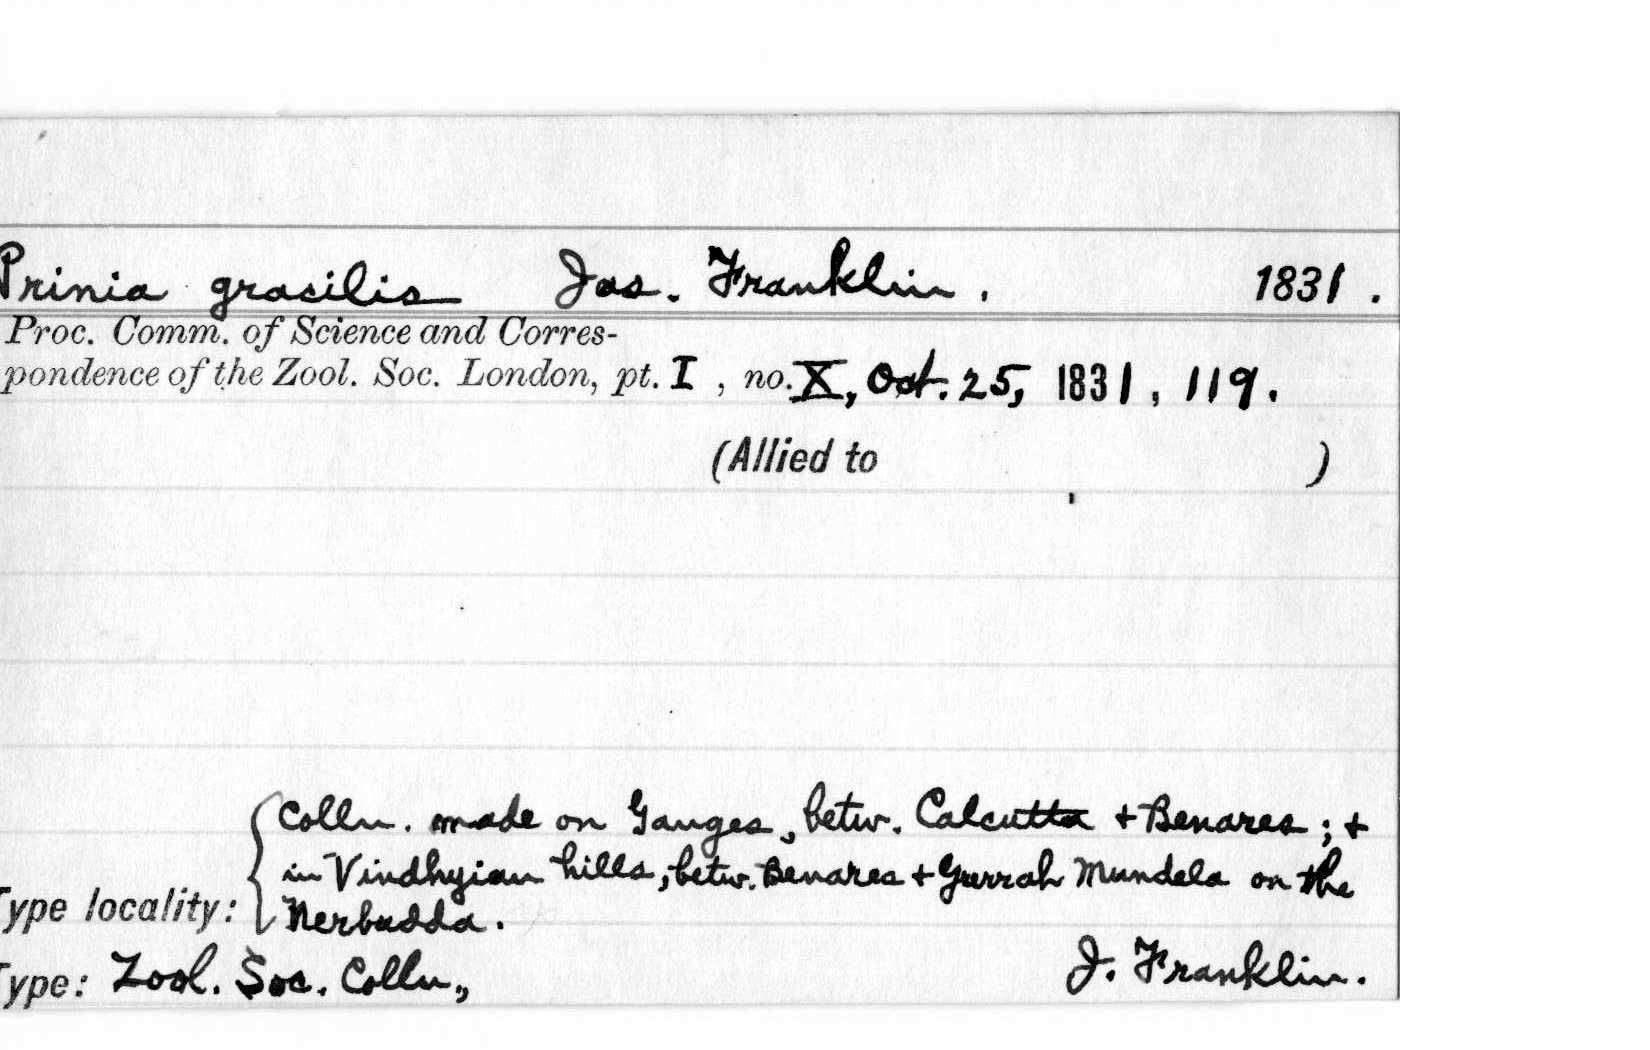 Prinia gracilis Jas. Franklin. 1831.
Proc. Comm. of Science and Corres-
pondence of the Zool. Soc. London, pt. I, no. X, Oct. 25, 1831, 119.
(Allied to )
Colln. made on Ganges, betw. Calcutta + Benares; +
in Vindhyian hills, betw. Benares + Gurrah Mundela on the
Type locality: Nerbudda.
Type: Zool. Soc. Colln., J. Franklin.